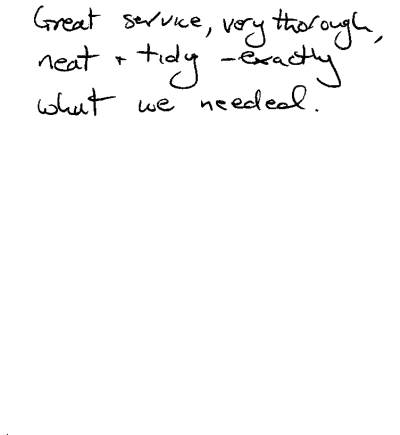 Great service, very thorough,
neat + tidy - exactly
what we needed.